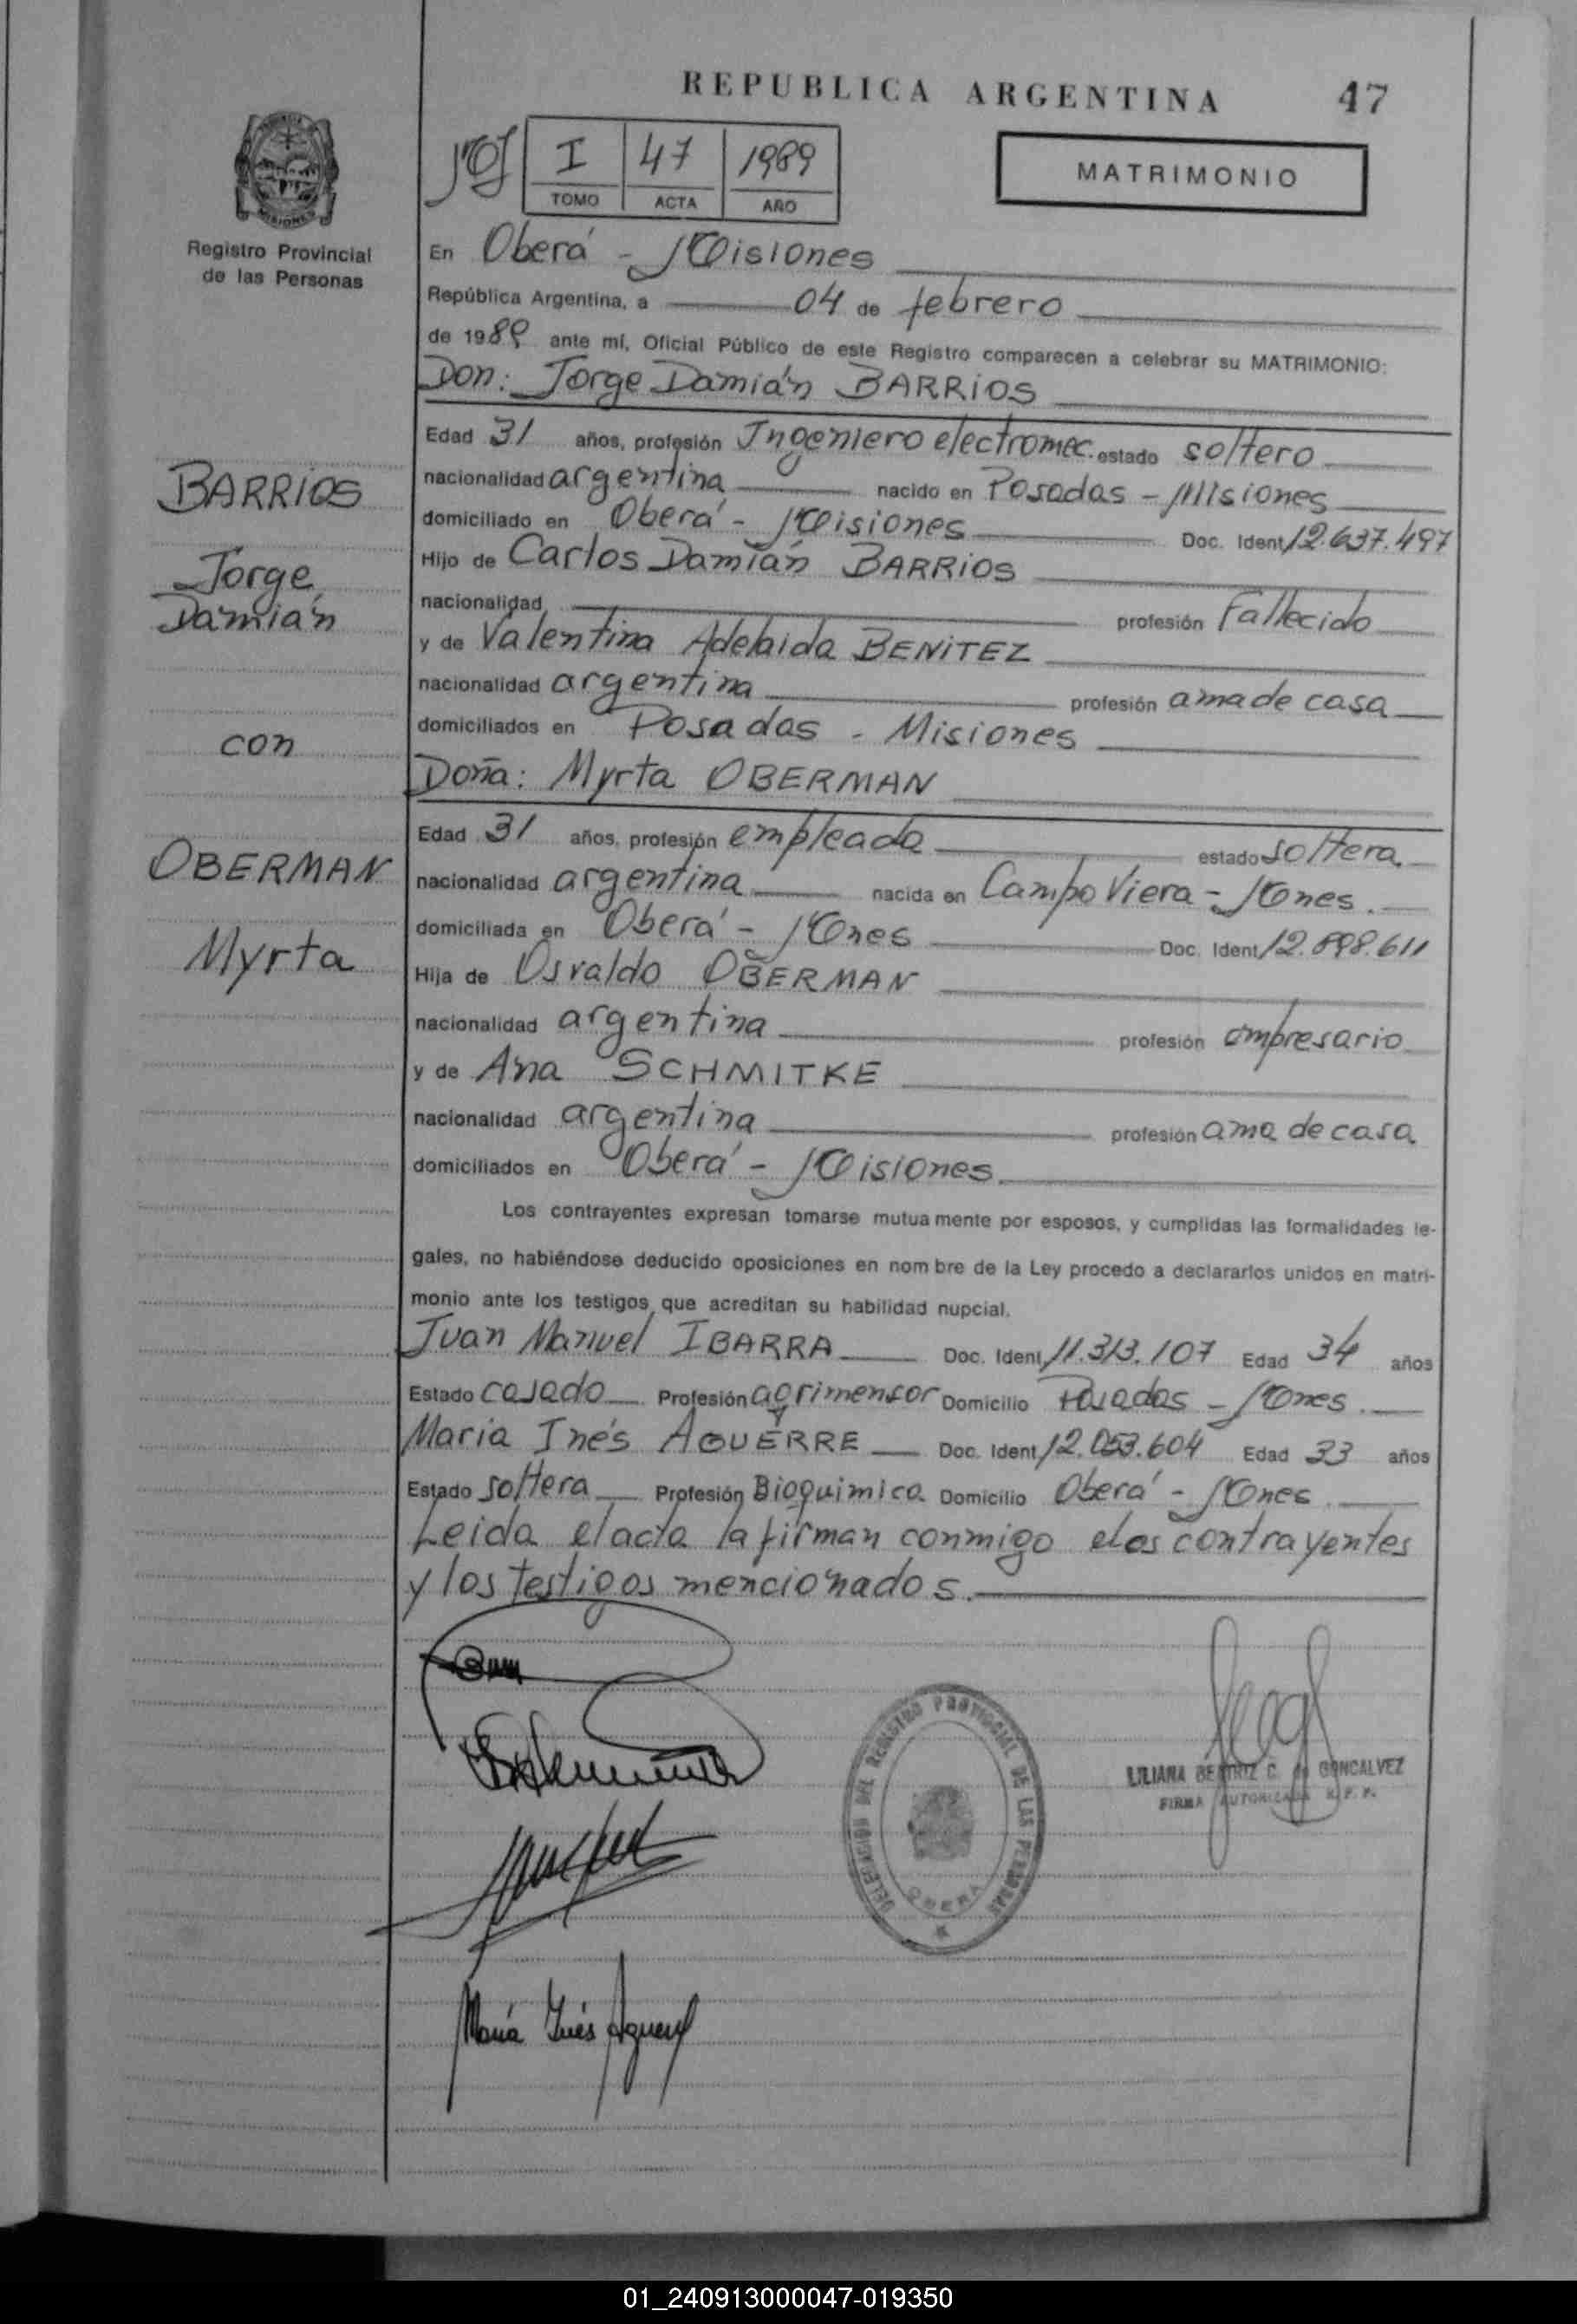 REPUBLICA ARGENTINA
47
I 47 1989
TOMO ACTA AÑO
MATRIMONIO
Registro Provincial
de las Personas
En Oberá - Misiones
República Argentina, a 04 de febrero
de 1989 ante mí, Oficial Público de este Registro comparecen a celebrar su MATRIMONIO:
Don: Jorge Damián BARRIOS
Edad 31 años, profesión Ingeniero electromec. estado soltero
nacionalidad argentina nacido en Posadas - Misiones
domiciliado en Oberá - Misiones Doc. Ident 12.637.497
Hijo de Carlos Damián BARRIOS
nacionalidad profesión Fallecido
y de Valentina Adelaida BENITEZ
nacionalidad argentina profesión ama de casa
domiciliados en Posadas - Misiones
Doña: Myrta OBERMAN
Edad 31 años, profesión empleada estado soltera.
nacionalidad argentina nacida en Campo Viera - Mones.
domiciliada en Oberá - Mones Doc. Ident 12.898.611
Hija de Osvaldo OBERMAN
nacionalidad argentina profesión empresario
y de Ana SCHMITKE
nacionalidad argentina profesión ama de casa
domiciliados en Oberá - Misiones
Los contrayentes expresan tomarse mutuamente por esposos, y cumplidas las formalidades le-
gales, no habiéndose deducido oposiciones en nombre de la Ley procedo a declararlos unidos en matri-
monio ante los testigos que acreditan su habilidad nupcial.
Juan Manuel IBARRA Doc. Ident 11.313.107 Edad 34 años
Estado casado Profesión agrimensor Domicilio Posadas - Mones.
Maria Inés AGUERRE Doc. Ident 12.053.604 Edad 33 años
Estado soltera Profesión Bioquimica Domicilio Oberá - Mones.
Leida el acta la firman conmigo elos contrayentes
y los testigos mencionados.
BARRIOS
Jorge
Damián
con
OBERMAN
Myrta
María Inés Aguerre
DELEGACION DEL REGISTRO PROVINCIAL DE LAS PERSONAS
OBERA
LILIANA BEATRIZ C. de GONCALVEZ
FIRMA AUTORIZADA R. P. P.
01_240913000047-019350